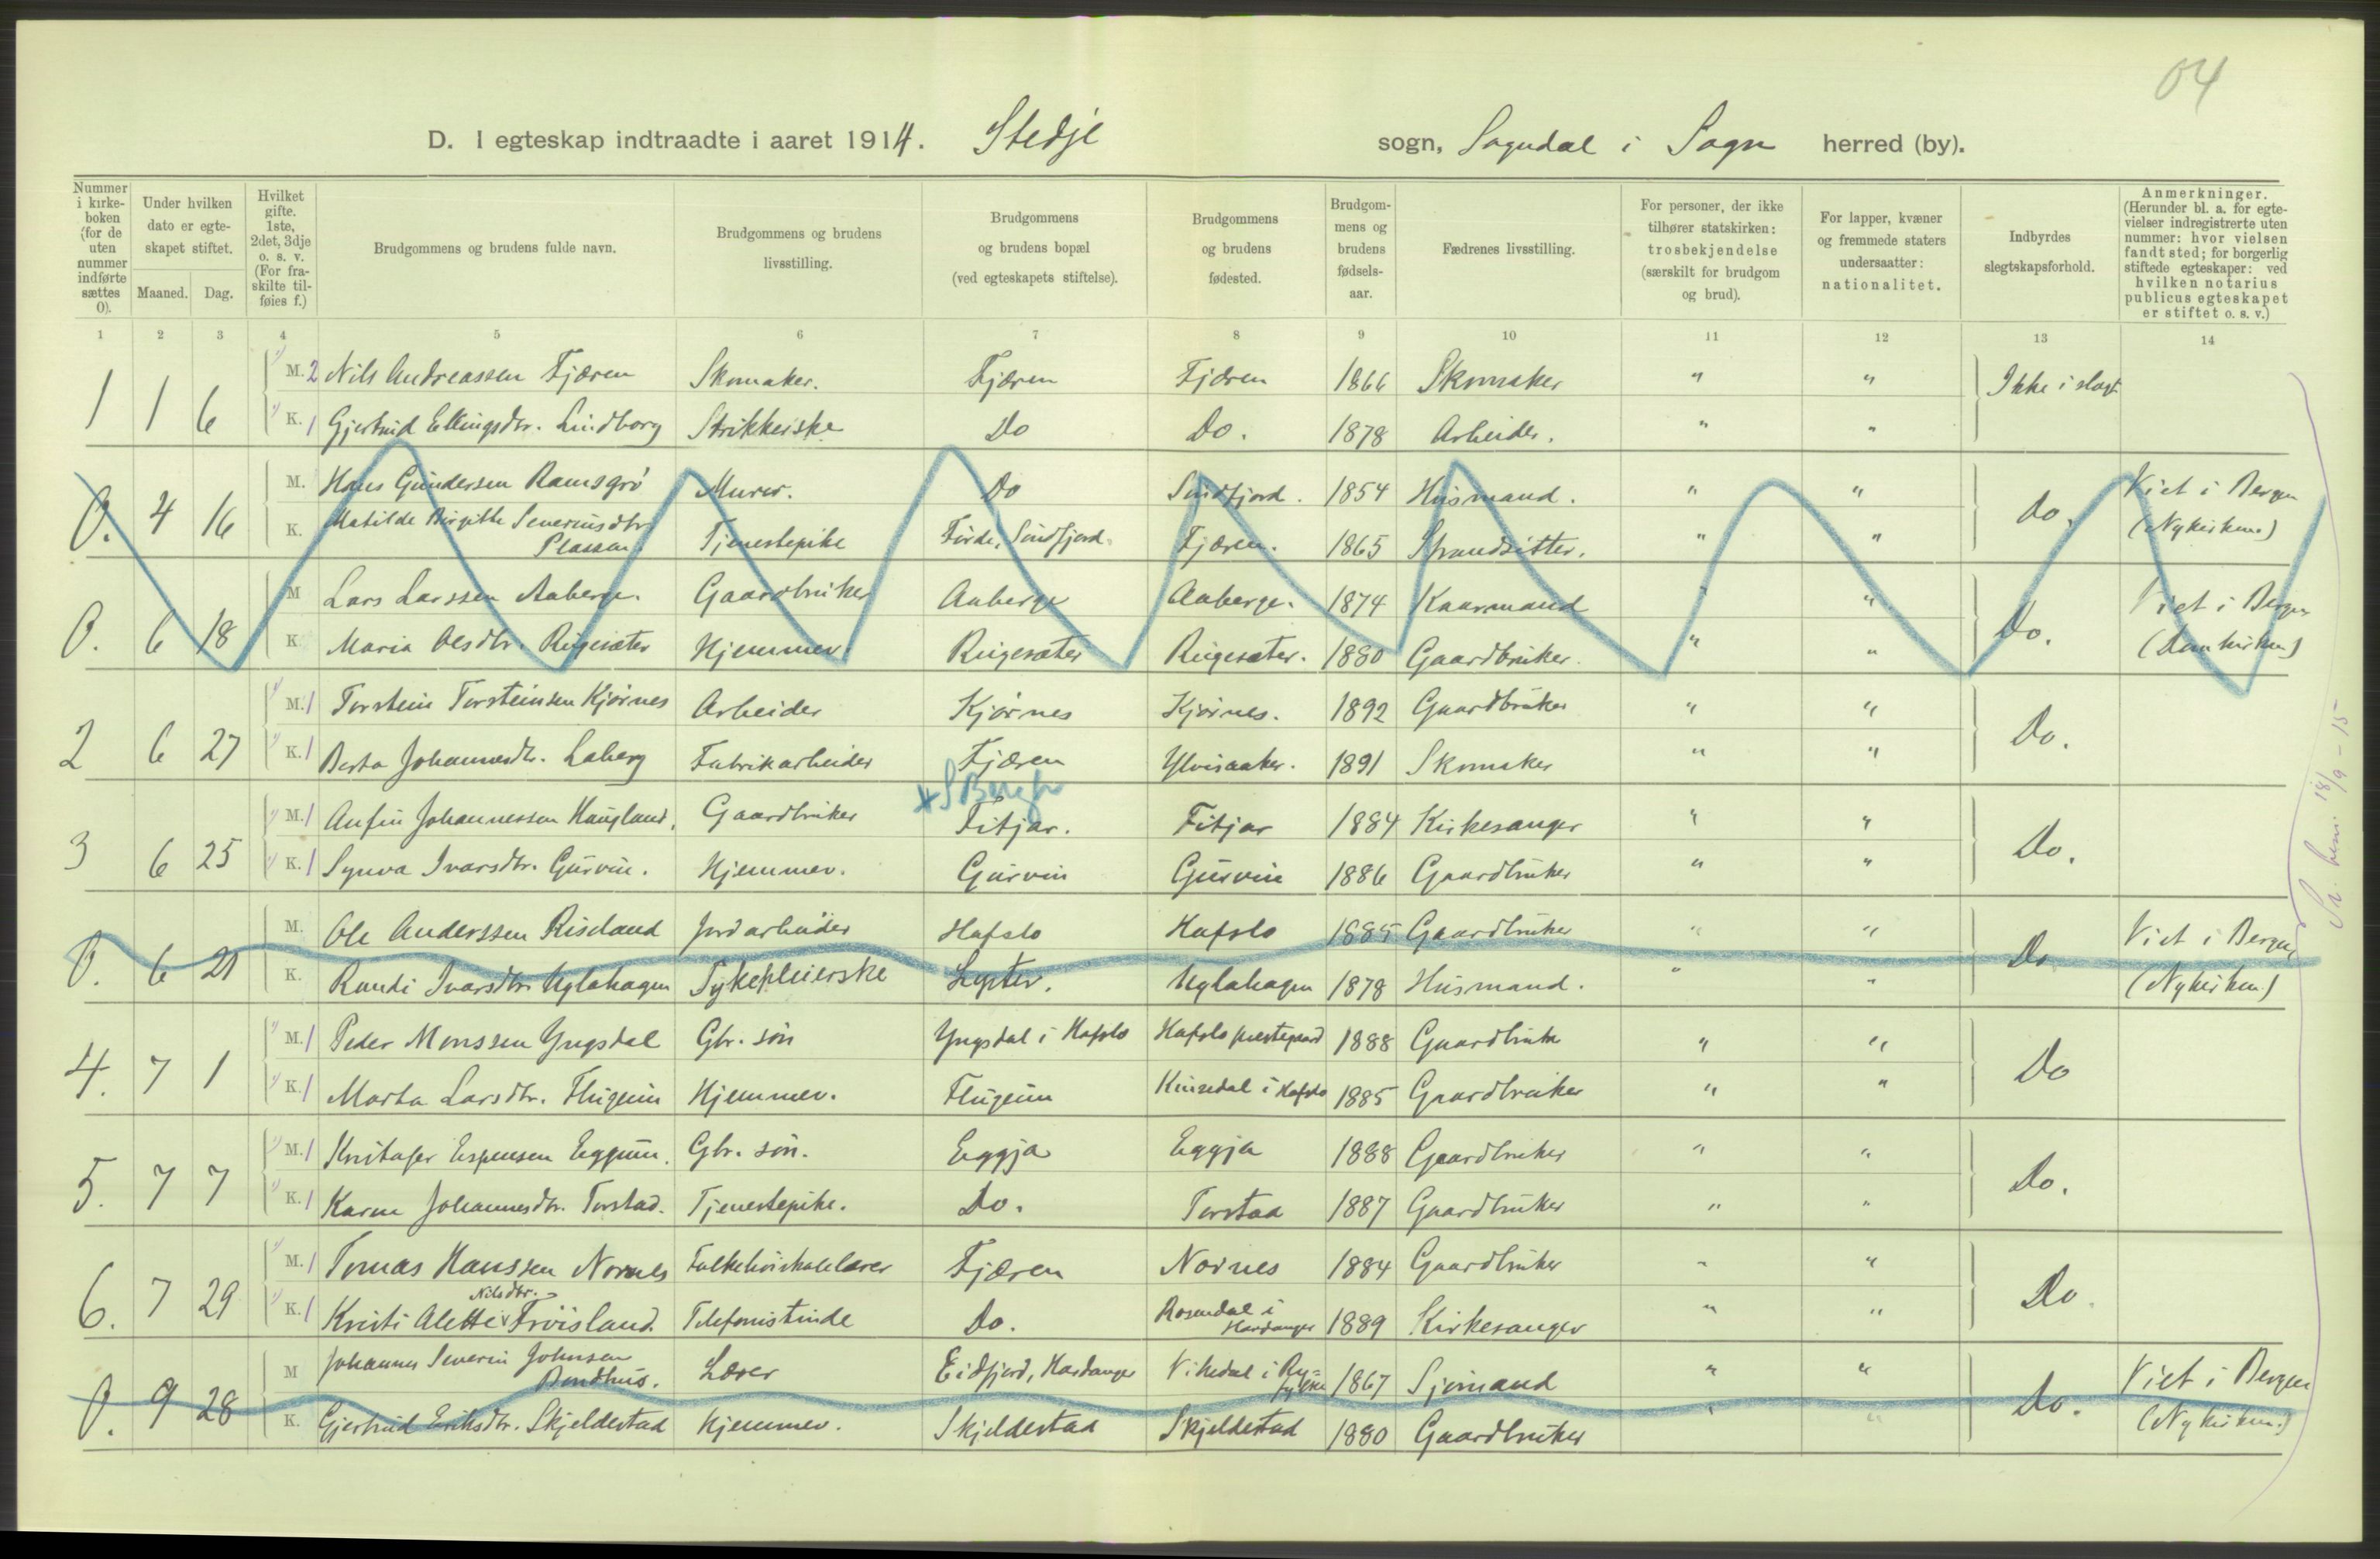 04
D. I egteskap indtraadte i aaret 1914. Stedje sogn, Sogndal i Sogn herred (by).
Nummer i kirke-boken (for de uten nummer indførte sættes 0).
Under hvilken dato er egte-skapet stiftet.
Maaned. Dag.
Hvilket gifte. 1ste, 2det, 3dje o. s. v. (For fra-skilte til-føies f.)
Brudgommens og brudens fulde navn.
Brudgommens og brudens livsstilling.
Brudgommens og brudens bopæl (ved egteskapets stiftelse).
Brudgommens og brudens fødested.
Brudgom-mens og brudens fødsels-aar.
Fædrenes livsstilling.
For personer, der ikke tilhører statskirken: trosbekjendelse (særskilt for brudgom og brud).
For lapper, kvæner og fremmede staters undersaatter: nationalitet.
Indbyrdes slegtskapsforhold.
Anmerkninger. (Herunder bl. a. for egte-vielser indregistrerte uten nummer: hvor vielsen fandt sted; for borgerlig stiftede egteskaper: ved hvilken notarius publicus egteskapet er stiftet o. s. v.)
1 2 3 4 5 6 7 8 9 10 11 12 13 14
1 1 6 M. 2 Nils Andreassen Fjæren Skomaker. Fjæren Fjæren 1866 Skomaker " " Ikke i slegt
K. 1 Gjertrud Ellingsdtr. Lindborg Strikkerske Do Do. 1878 Arbeider. " "
0. 4 16 M. Hans Gundersen Ramsgrø Murer. Do Sundfjord. 1854 Husmand. " " Do. Viet i Bergen
K. Matilde Birgitte Severinsdtr. Plassen. Tjenestepike Førde, Søndfjord. Fjæren. 1865 Strandsitter. " " (Nykirken.)
0. 6 18 M Lars Larssen Aaberge. Gaardbruker Aaberge Aaberge. 1874 Kaarmand " " Do. Viet i Bergen
K Maria Olsdtr. Ringesæter Hjemmev. Ringesæter Ringesæter. 1880 Gaardbruker. " " (Domkirken)
2 6 27 M. 1 Torstein Torsteinsen Kjørnes Arbeider Kjørnes Kjørnes. 1892 Gaardbruker " " Do.
K. 1 Berta Johannesdtr. Laberg Fabrikarbeider Fjæren Ylvisaaker. 1891 Skomaker " "
3 6 25 M. 1 Anfin Johannessen Haugland. Gaardbruker Fitjar. Fitjar 1884 Kirkesanger " " Do.
K. 1 Synva Ivarsdtr. Gurvin. Hjemmev. Gurvin Gurvin 1886 Gaardbruker " "
0. 6 21 M. Ole Anderssen Riseland Jordarbeider Hafslo Hafslo 1885 Gaardbruker " " Do Viet i Bergen
K. Randi Ivarsdtr. Uglahagen Sykepleierske Lyster. Uglahagen 1878 Husmand. " " (Nykirken)
4. 7 1 M. 1 Peder Monssen Yngsdal Gbr. søn Yngsdal i Hafslo Hafslo prestegaard 1888 Gaardbruker " " Do
K. 1 Marta Larsdtr. Flugeim Hjemmev. Flugeim Kinsedal i Hafslo 1885 Gaardbruker " "
5. 7 7 M. 1 Kristofer Espensen Eggum. Gbr. søn. Eggja Eggja 1888 Gaardbruker " " Do.
K. 1 Karen Johannesdtr. Torstad. Tjenestepike. Do. Torstad 1887 Gaardbruker " "
6. 7 29 M. 1 Tomas Hanssen Nornes Folkehøiskolelærer Fjæren Nornes 1884 Gaardbruker " " Do.
K. 1 Kristi Alette Nilsdtr. Frøisland. Telefonistinde Do. Rosendal i Hardanger 1889 Kirkesanger " "
0. 9 28 M Johannes Severin Johnsen Bondhus. Lærer Eidfjord, Hardanger Vikedal i Ryfylke 1867 Sjømand " " Do. Viet i Bergen
K. Gjertrud Eriksdtr. Skjeldestad Hjemmev. Skjeldestad Skjeldestad 1880 Gaardbruker " " (Nykirken.)
18/9 - 15